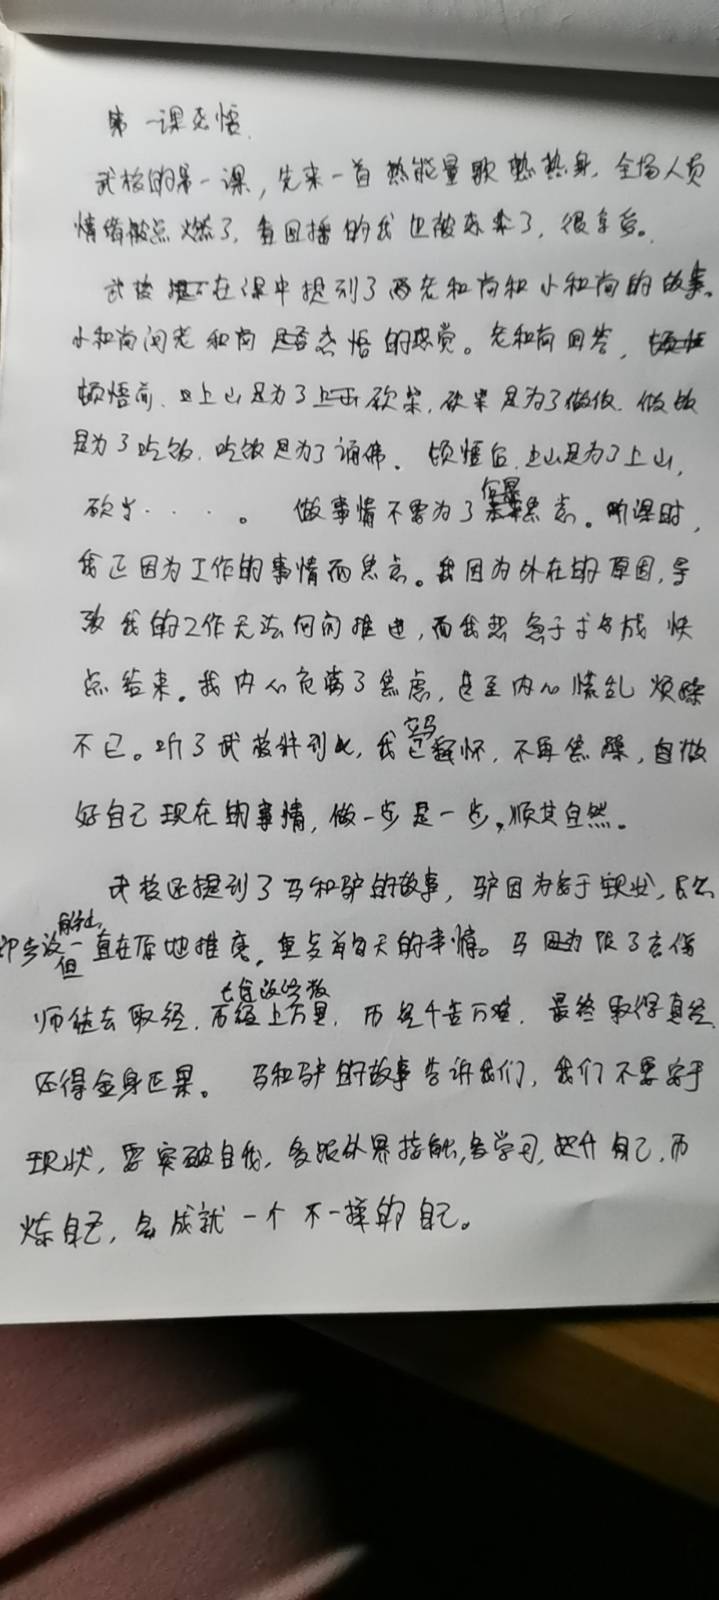 第一课感悟.
武校的第一课,先来一首热能量歌热热身,全场人员
情绪被点燃了,看回播的我也被点燃了,很享受。
武校在课中提到了老和尚和小和尚的故事。
小和尚问老和尚是否感悟的感觉。老和尚回答,
顿悟前,上山是为了砍柴,砍柴是为了做饭.做饭
是为了吃饭.吃饭是为了诵佛. 顿悟后,上山是为了上山,
砍柴....。 做事情不要为了结果焦虑。听课时,
我正因为工作的事情而焦虑。我因为外在的原因,导
致我的工作无法向前推进,而我想急于求成快
点结束。我内心充满了焦虑,甚至内心慌乱烦躁
不已。听了武校讲到此,我立马释怀,不再焦躁,自做
好自己现在的事情,做一步是一步,顺其自然。
武校还提到了马和驴的故事,驴因为安于现状,
即去没
但一直在原地推磨,重复着每天的事情。马因为跟了唐僧
师徒去取经,上万里,历经千辛万难,最终取得真经,
还得金身正果。 马和驴的故事告诉我们,我们不要安于
现状,要突破自我,多跟外界接触,多学习,提升自己,历
炼自己,会成就一个不一样的自己。